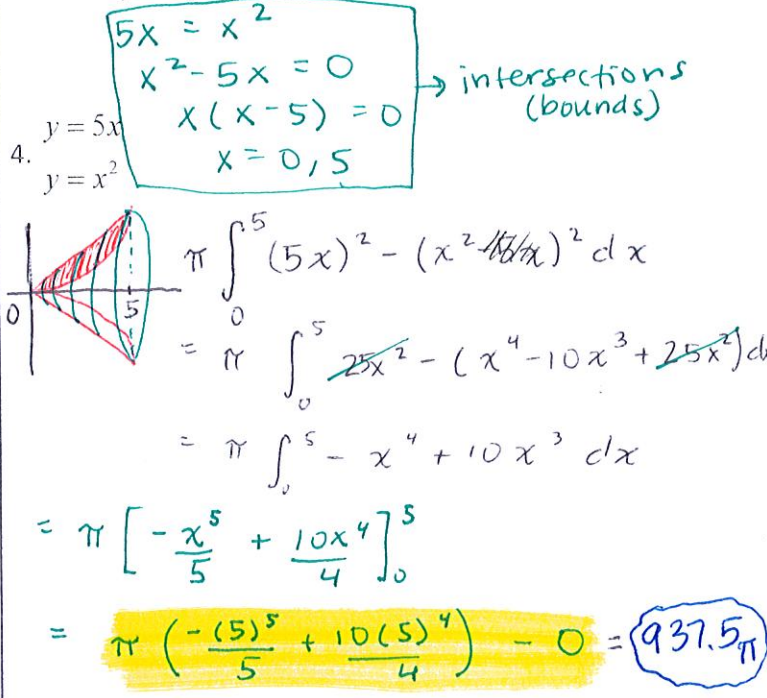 5x = x²
x² - 5x = 0
x(x-5) = 0
x = 0, 5
→ intersections
(bounds)
4.
y = 5x
y = x²
0
5
π ∫₀⁵ (5x)² - (x² )² dx
= π ∫₀⁵ 25x² - (x⁴ - 10x³ + 25x²) d
= π ∫₀⁵ - x⁴ + 10x³ dx
= π [ -x⁵/5 + 10x⁴/4 ]₀⁵
= π ( -(5)⁵/5 + 10(5)⁴/4 ) - 0 = 937.5π